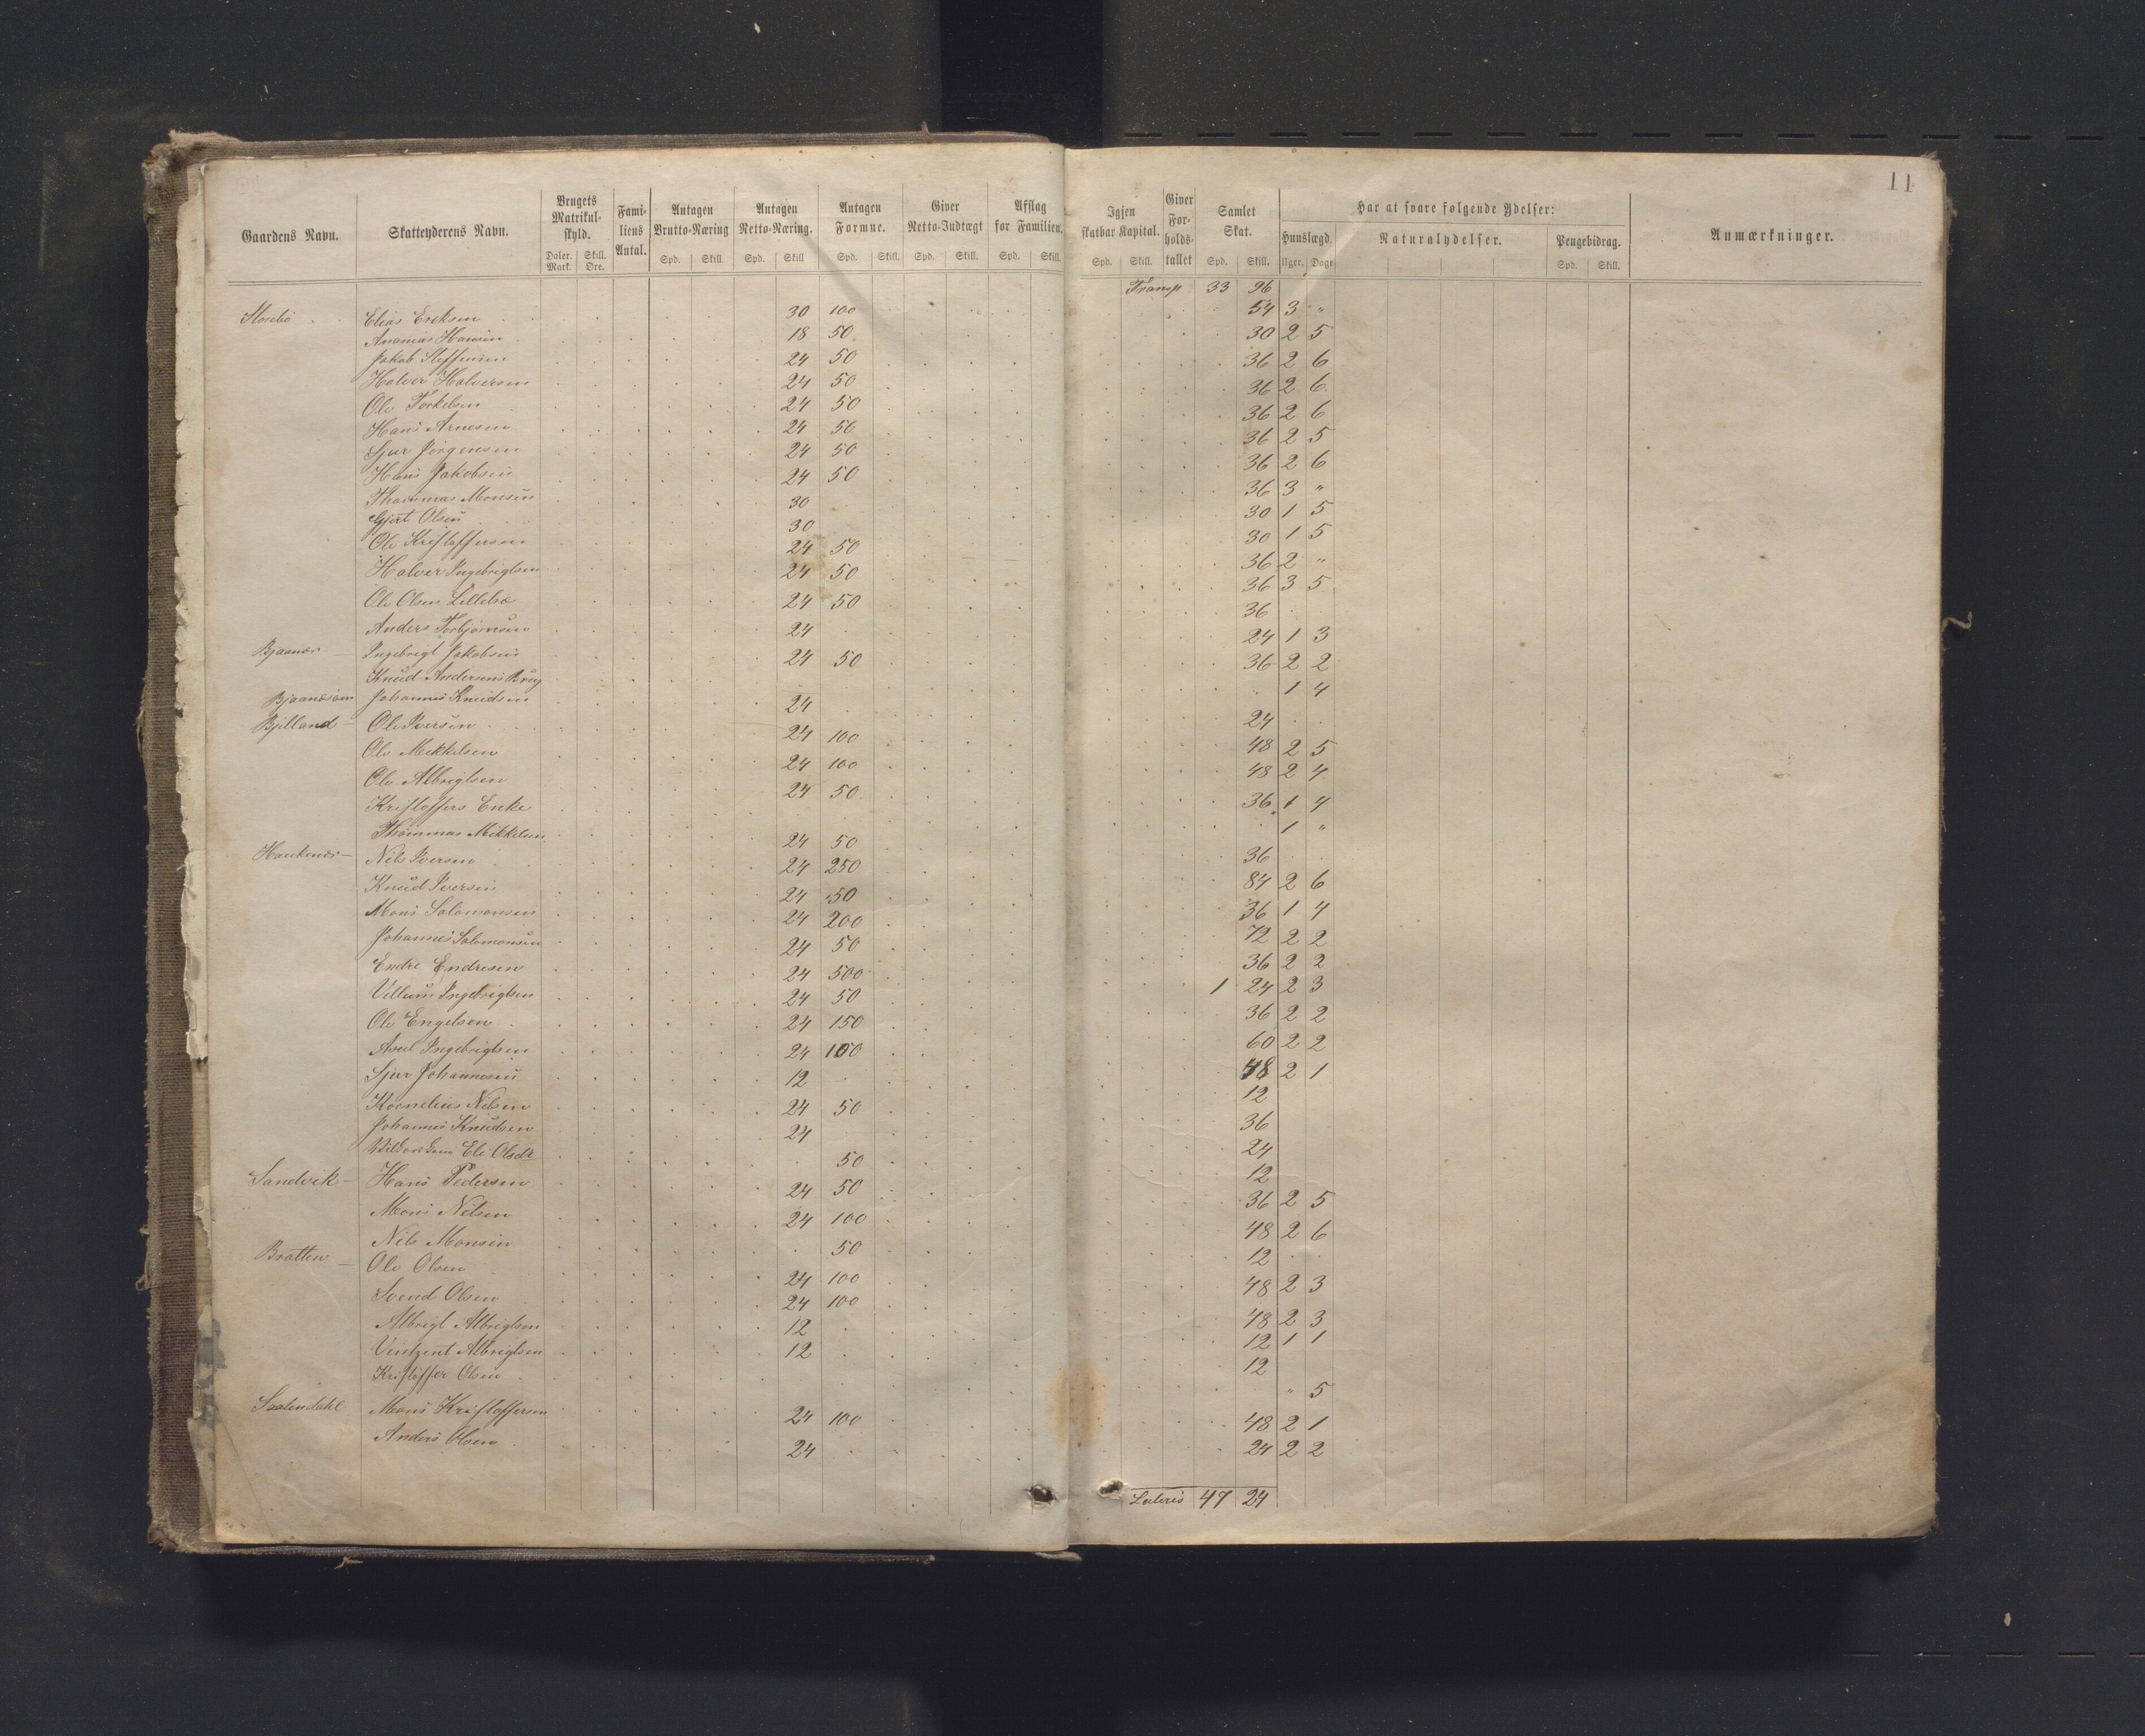 11
Gaardens Navn. Skatteyderens Navn. Brugets Matrikul-skyld. Fami-liens Antal. Antagen Brutto-Næring Antagen Netto-Næring. Antagen Formue. Giver Netto-Indtægt Afslag for Familien. Igjen skatbar Kapital. Giver For-holds-tallet Samlet Skat. Har at svare følgende Ydelser: Anmærkninger.
Hunslægd. Naturalydelser. Pengebidrag.
Daler. Mark. Skill. Øre. Spd. Skill. Spd. Skill Spd. Skill. Spd. Skill. Spd. Skill. Spd. Skill. Spd. Skill. Uger. Dage Spd. Skill.
Transp 33 96
Elias Eriksen 30 100 54 3 "
Ananias Hansen 18 50 30 2 5
Jakob Steffensen 24 50 36 2 6
Halver Halversen 24 50 36 2 6
Ole Torkelsen 24 50 36 2 6
Hans Arnesen 24 50 36 2 5
Sjur Jörgensen 24 50 36 2 6
Hans Jakobsen 24 50 36 3 "
Thommas Monsen 30 30 1 5
Gjert Olsen 30 30 1 5
Ole Kristoffersen 24 50 36 2 "
Halver Ingebrigtsen 24 50 36 3 5
Ole Olsen Lillebø 24 50 36
Anders Torbjørnsen 24 24 1 3
Bjaanæs Ingebregt Jakobsen 24 50 36 2 2
Knud Andersens Brug 1 4
Johannes Knudsen 24 24
Bjelland Ole Iversen 24 100 48 2 5
Ole Mekkelsen 24 100 48 2 4
Ole Albregtsen 24 50 36 1 4
Kristoffers Enke 1 "
Thommas Mikkelsen 24 50 36
Haukenæs Nils Iversen 24 250 84 2 6
Knud Iversen 24 50 36 1 4
Mons Salomonsen 24 200 72 2 2
Johannes Salomonsen 24 50 36 2 2
Endre Endresen 24 500 1 24 2 3
Villum Ingebrigtsen 24 50 36 2 2
Ole Engelsen 24 150 60 2 2
Axel Ingebrigtsen 24 100 48 2 1
Sjur Johannesen 12 12
Kornelius Nelsen 24 50 36
Johannes Knudsen 24 24
Eli Olsdr 50 12
Sandvik Hans Pedersen 24 50 36 2 5
Mons Nelsen 24 100 48 2 6
Nils Monsen 50 12
Bratten Ole Olsen 24 100 48 2 3
Svend Olsen 24 100 48 2 3
Albregt Albregtsen 12 12 1 1
Ventzent Albregtsen 12 12
Kristoffer Olsen " 5
Mons Kristoffersen 24 100 48 2 1
Anders Olsen 24 24 2 2
Lateris 47 24